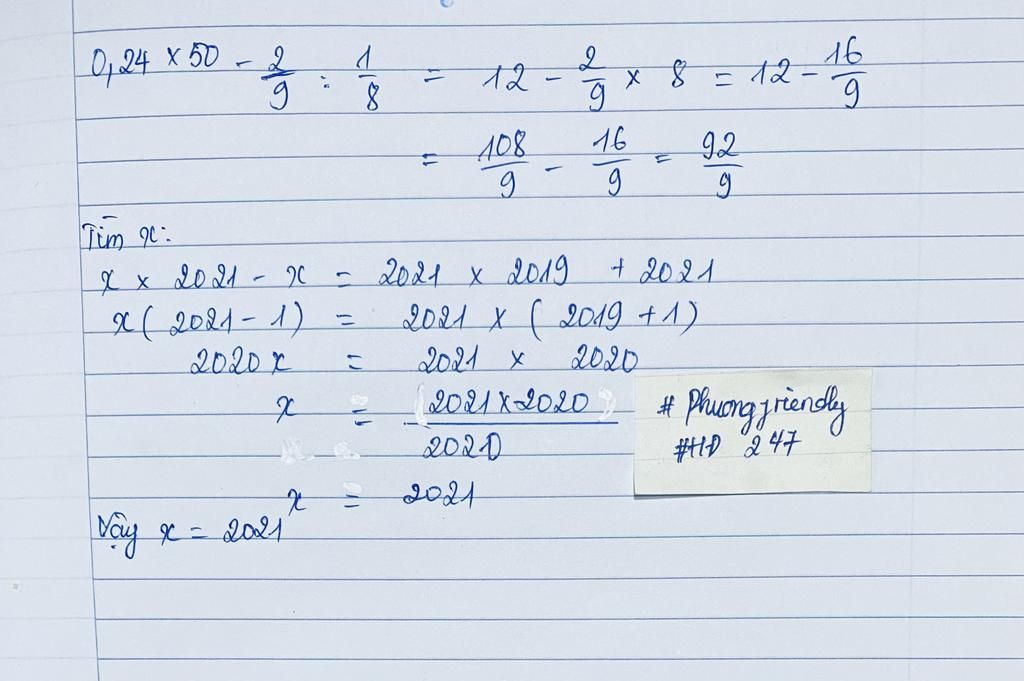 0,24 × 50 - 2/9 : 1/8 = 12 - 2/9 × 8 = 12 - 16/9
= 108/9 - 16/9 = 92/9
Tìm x:
x × 2021 - x = 2021 × 2019 + 2021
x ( 2021 - 1 ) = 2021 × ( 2019 + 1 )
2020 x = 2021 × 2020
x = 2021 × 2020 / 2020
x = 2021
Vậy x = 2021
# Phuongfriendly
#HD 247